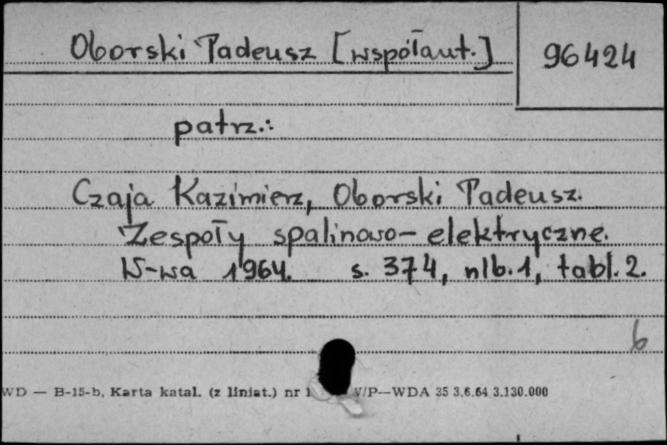 Oborski Tadeusz [współaut.]
96424
patrz.:
Czaja Kazimierz, Oborski Tadeusz.
Zespoły spalinowo-elektryczne.
W-wa 1964. s. 374, nlb. 1, tabl. 2.
6
WD — B-15-b, Karta katal. (z liniat.) nr 1 /P—WDA 35 3.6.64 3.130.000